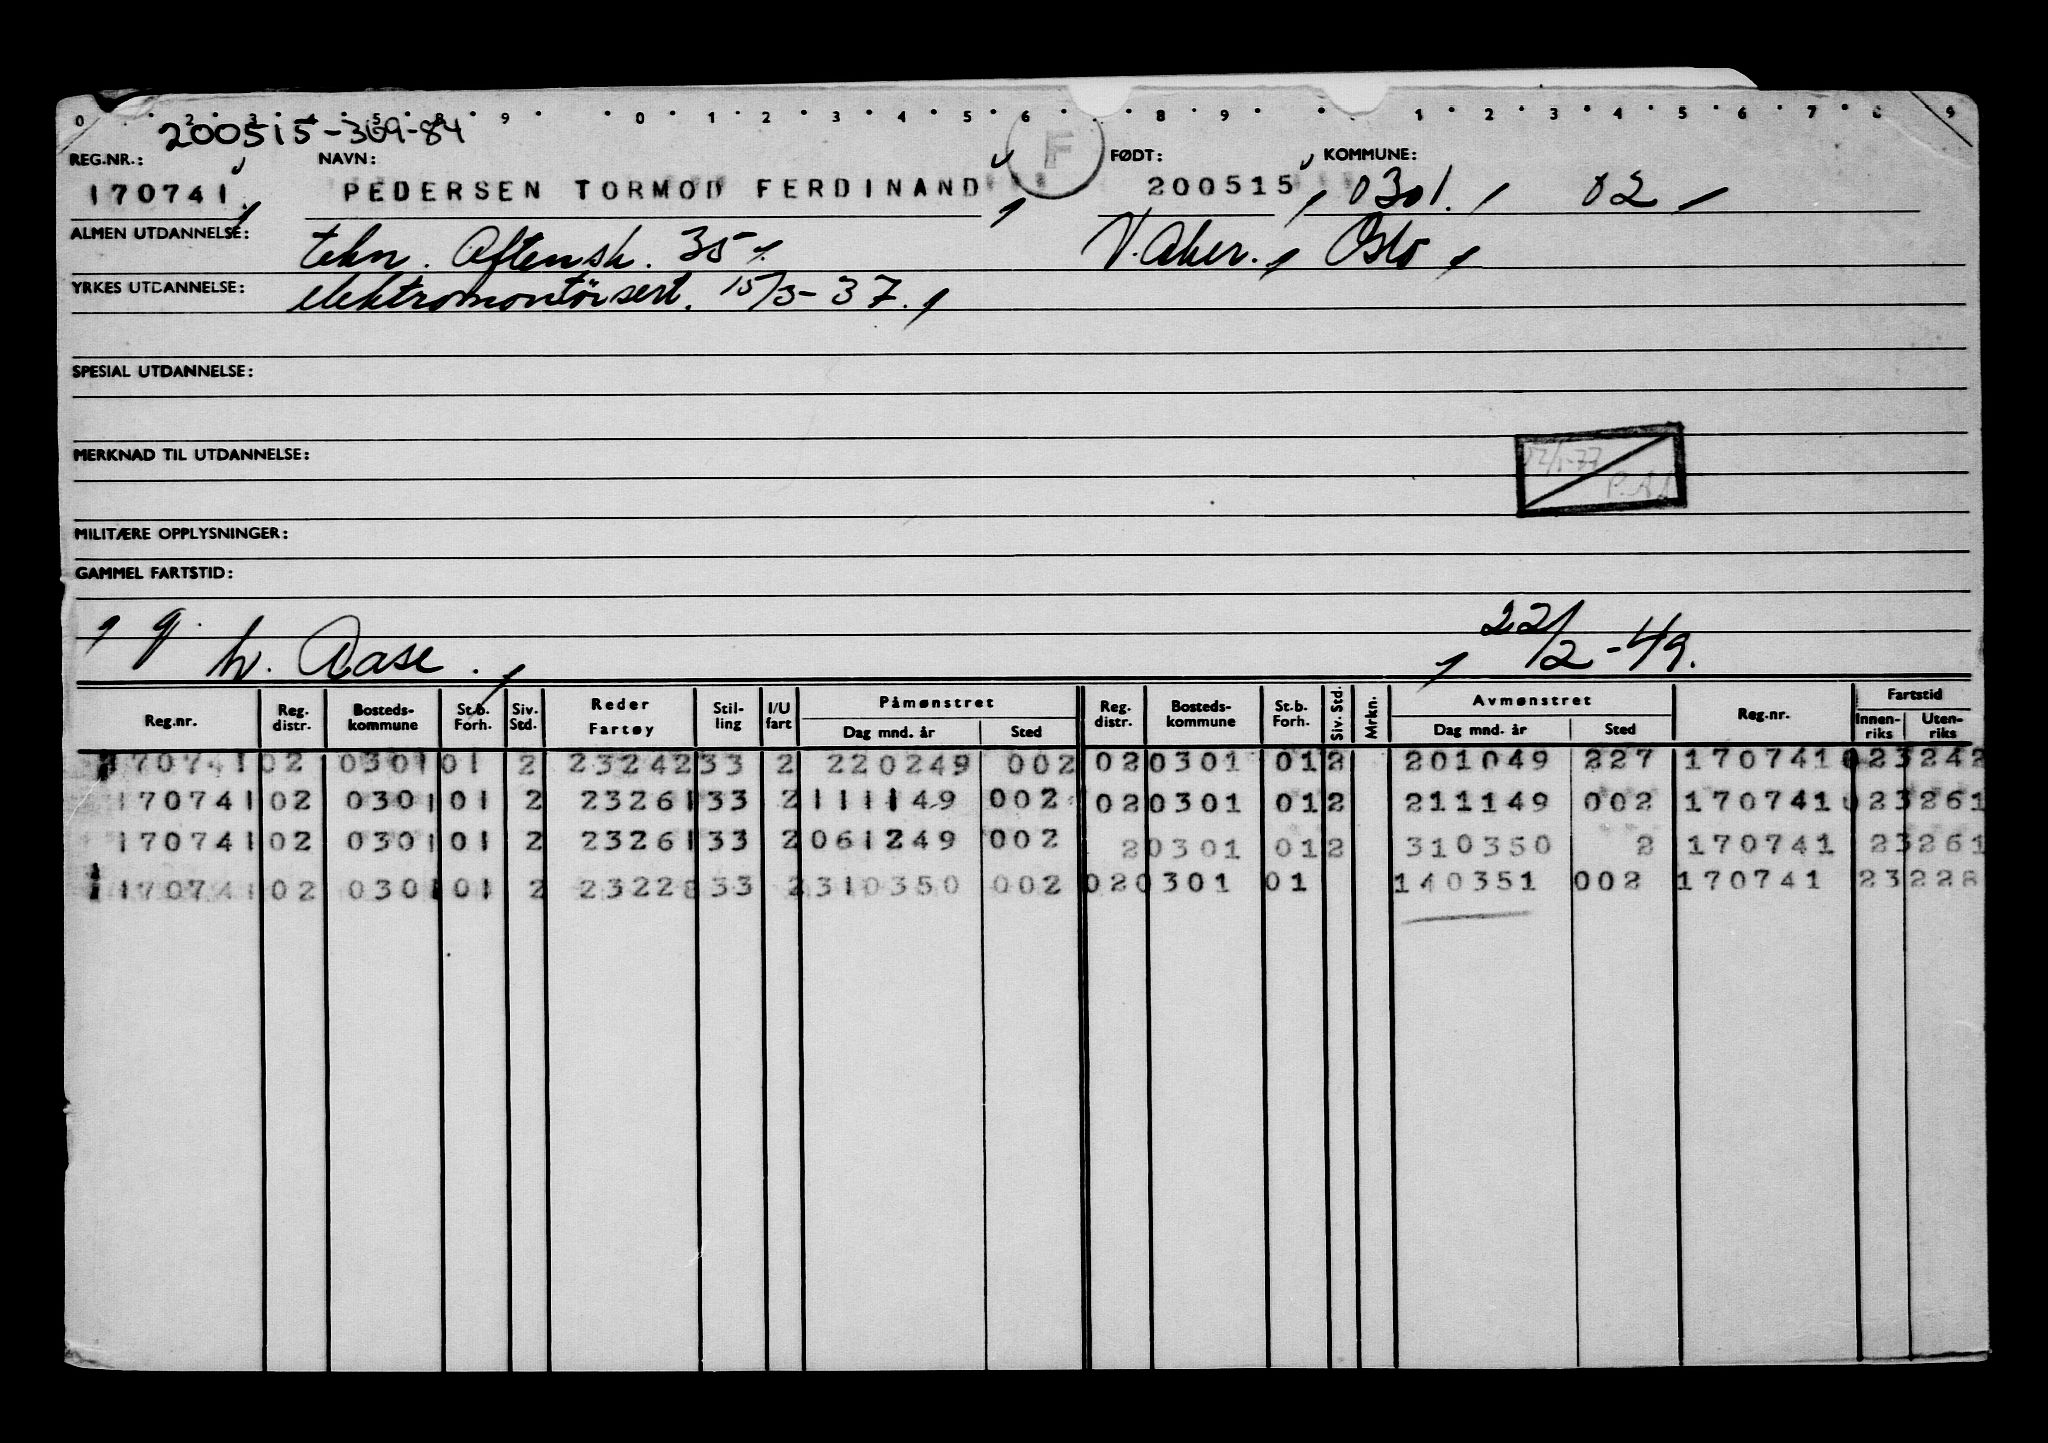 200515-369-84
REG.NR.: NAVN: F FØDT: KOMMUNE:
170741 PEDERSEN TORMOD FERDINAND 200515 0301. 02
ALMEN UTDANNELSE: tekn. Aftensk. 35 V. Aker. Oslo
YRKES UTDANNELSE: elektromontørsert. 15/3-37.
SPESIAL UTDANNELSE:
MERKNAD TIL UTDANNELSE:
MILITÆRE OPPLYSNINGER:
GAMMEL FARTSTID:
g. h. Aase. 22/2-49.
Reg.nr. Reg. distr. Bosteds-kommune St.b. Forh. Siv. Std. Reder Fartøy Stil-ling I/U fart Påmønstret Dag mnd. år Sted Reg. distr. Bosteds-kommune St.b. Forh. Siv. Std. Mrkn. Avmønstret Dag mnd. år Sted Reg.nr. Fartstid Innen-riks Uten-riks
170741 02 0301 01 2 23242 33 2 220249 002 02 0301 01 2 201049 227 170741 23242
170741 02 0301 01 2 23261 33 2 111149 002 02 0301 01 2 211149 002 170741 23261
170741 02 0301 01 2 23261 33 2 061249 002 2 0301 01 2 310350 2 170741 23261
170741 02 0301 01 2 23228 33 2 310350 002 02 0301 01 140351 002 170741 23228